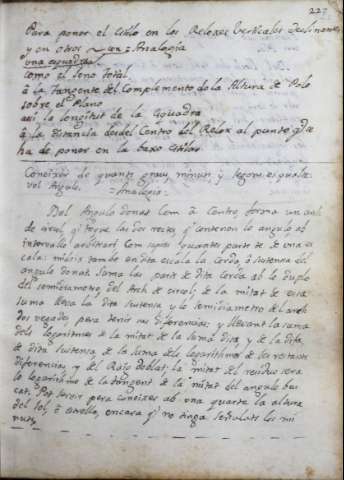 227
Para poner el Estilo en los Reloxes Verticales declinantes
y en otros con Analogia
una esquadra
Como el seno total
à la Tangente del Complemento de la Altura de Polo
sobre el Plano
assi la longitut de la Esquadra
à la distancia desdel Centro del Relox al punto q̃ se
ha de poner en la baxo Estilar.
Coneixer de quants graus, minuts, y segons es qualse-
vol Angulo. Analogia
Del Angulo donat com à Centro forma un arch
de circul, q̃ toque las dos rectas q̃ contenen lo angulo ab
intervallo arbitrari. Com supos quantas parts te de una es
cala: mideix tambe en dita escala la Corda, ò sustensa del
angulo donat. Suma las parts de dita Corda ab lo duplo
del semidiametro del Arch de circul, y de la mitat de esta
suma lleva la dita sustensa, y lo semidiametro del arch
dos vegadas pera tenir tres diferencias; y llevant la suma
dels logaritmes de la mitat de la suma dita, y de la difa
de dita sustensa, de la suma dels logarithmes de les restants
diferencias, y del Raig doblat; la mitat del residuo sera
lo logarithme de la tangent de la mitat del angulo bus
cat. Pot servir pera coneixer ab una quarta la altura
del sol, ò estrella, encara q̃ no tinga señalats los mi
nuts.